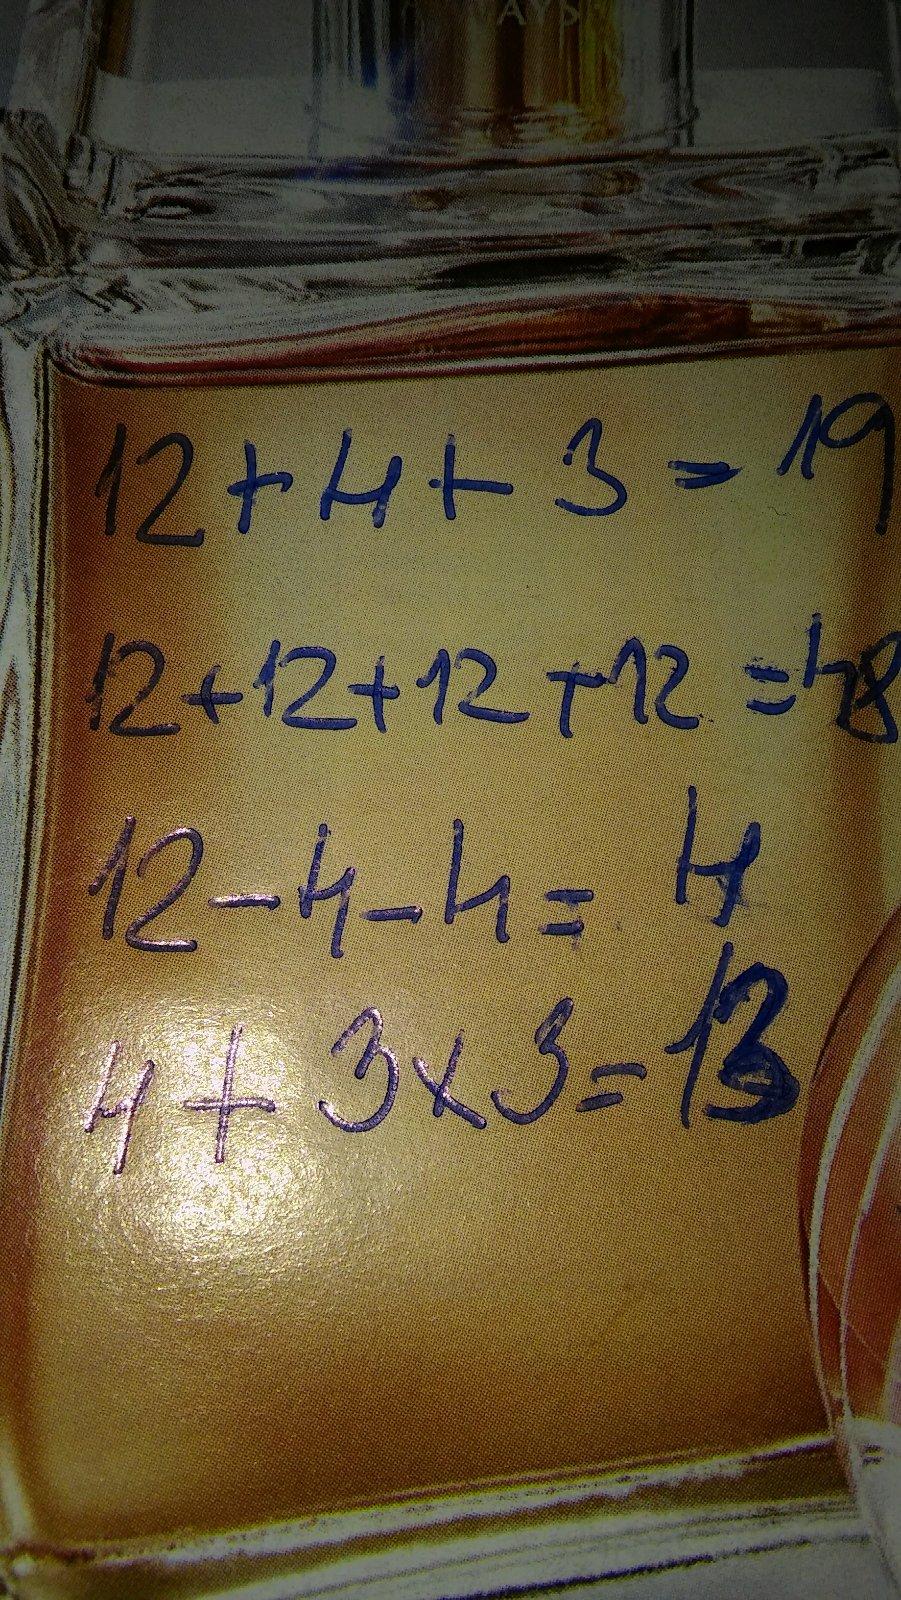 WAYS
12+4+3=19
12+12+12+12=48
12-4-4=4
4+3x3=13